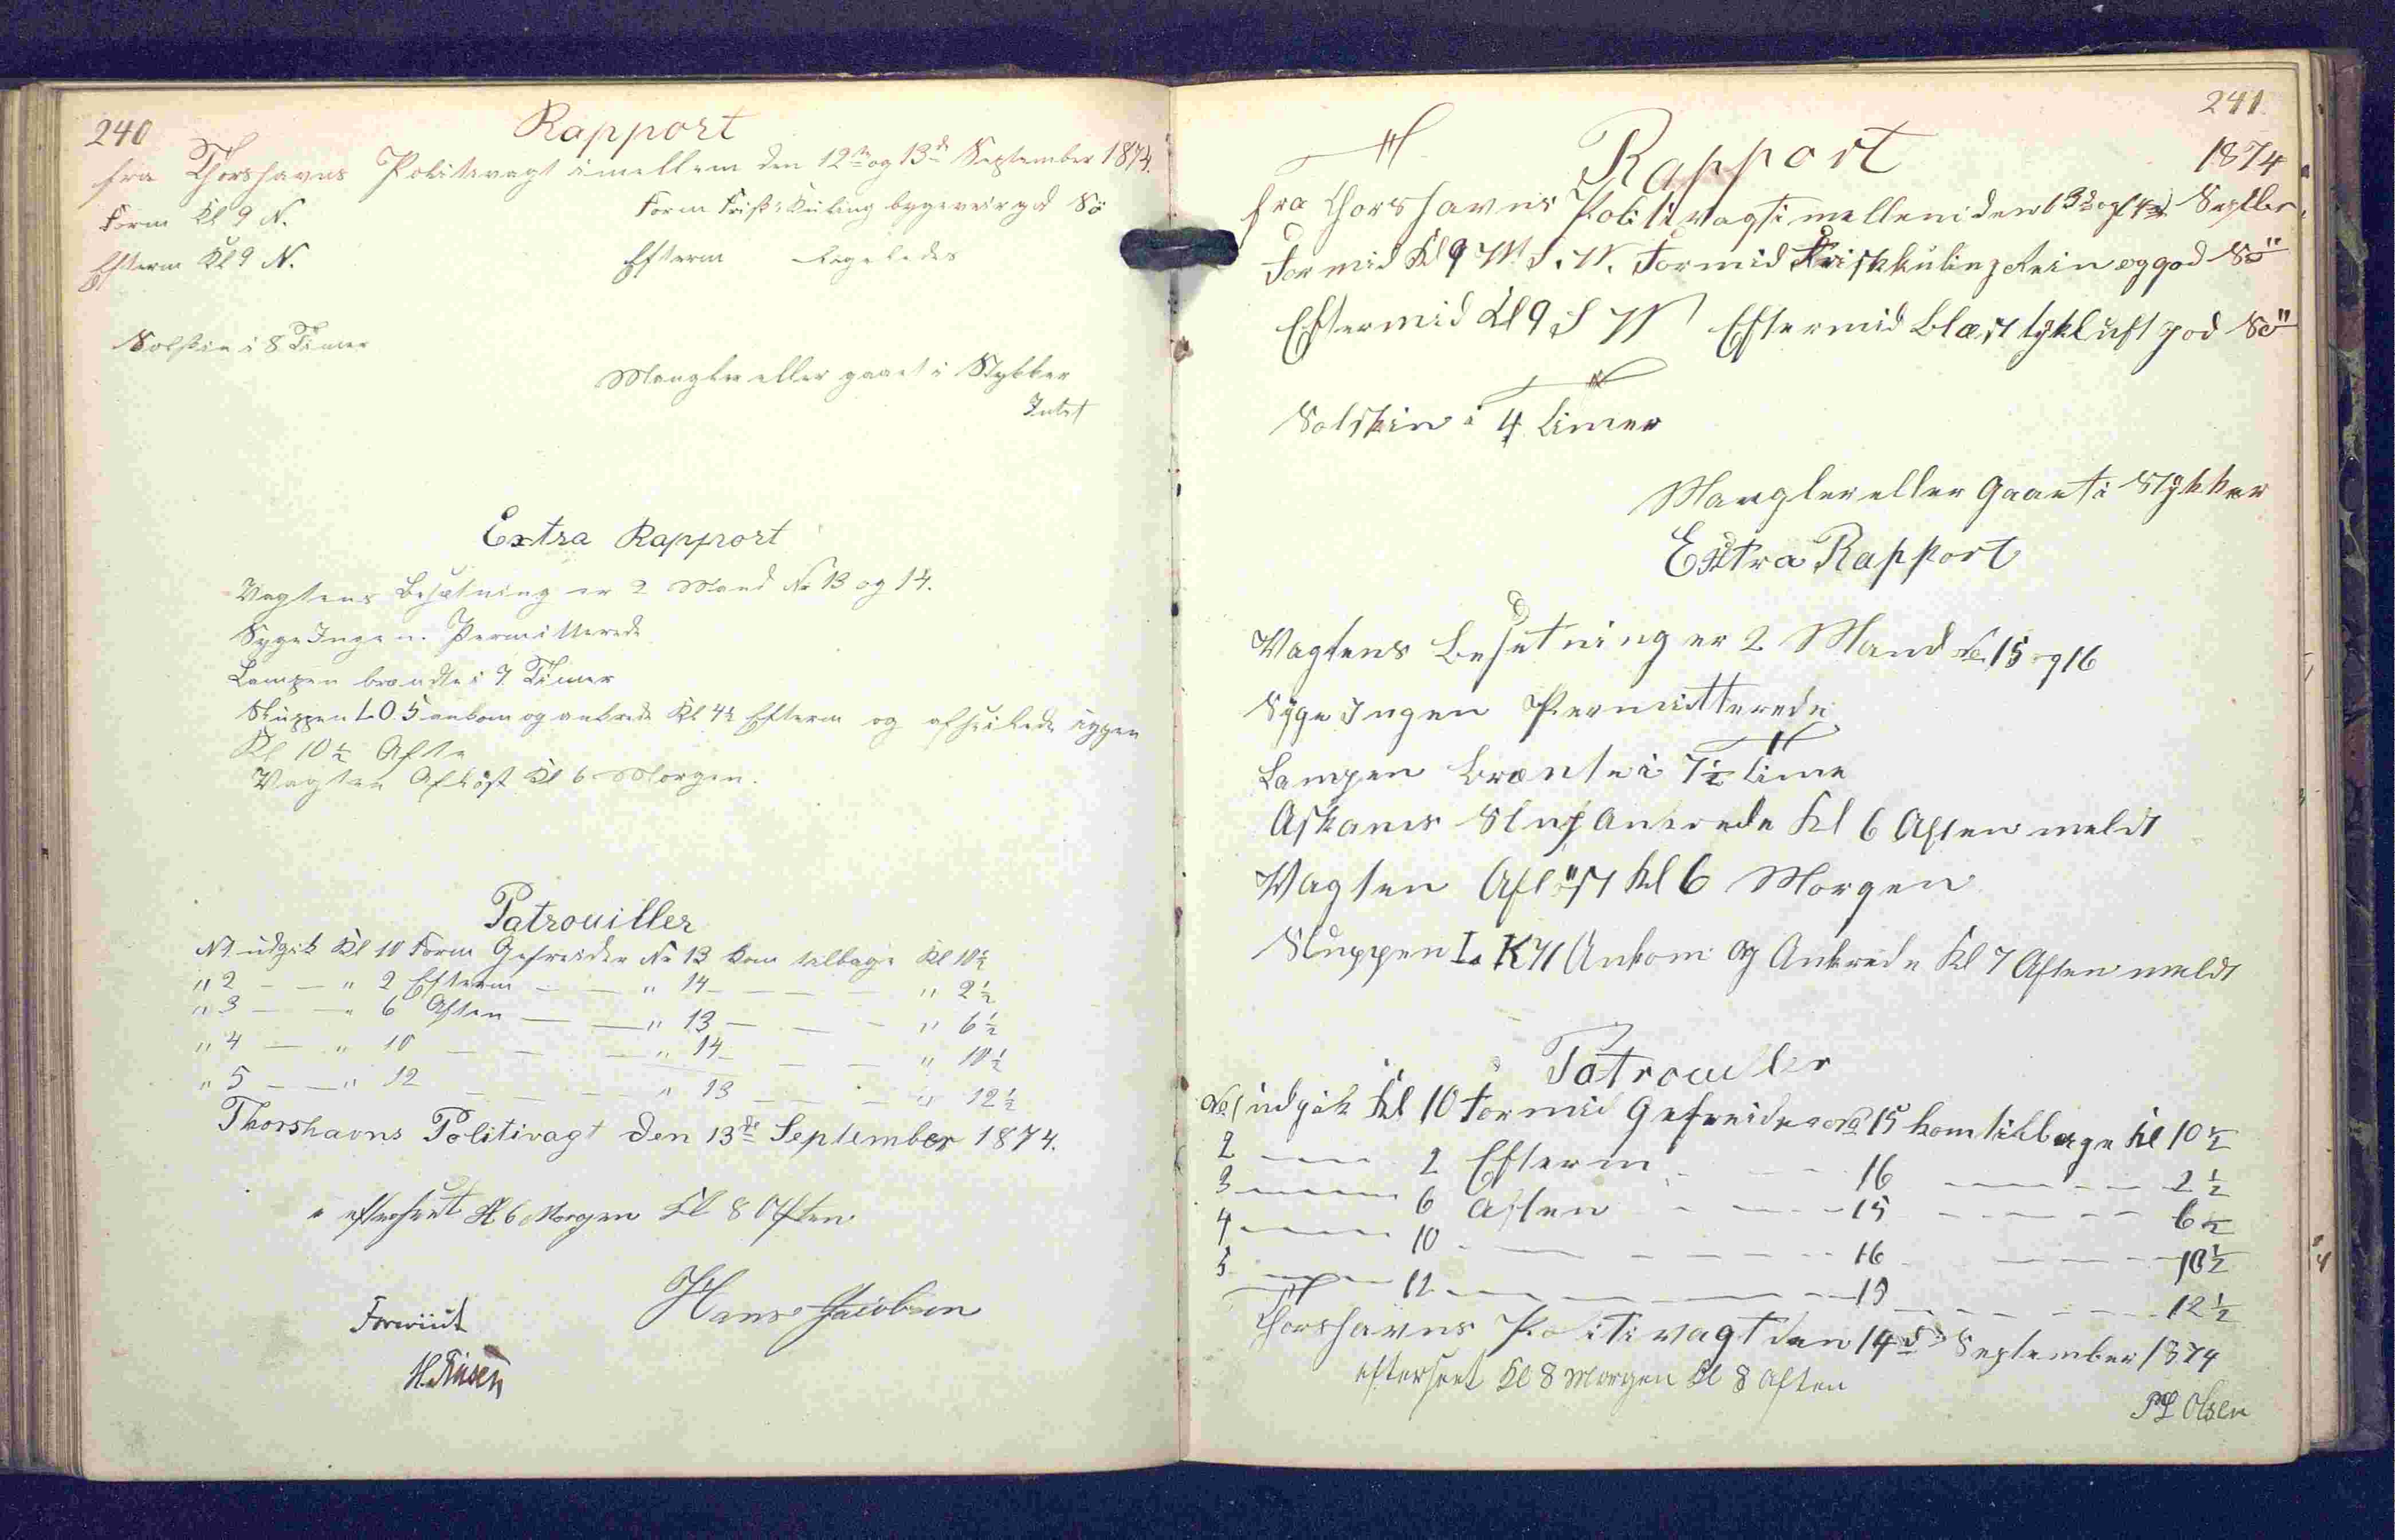 240
Rapport
fra Thorshavns Politivagt imellem den 12te og 13de September 1874.
Form Kl 9 N. Form Frisk Kuling bygeveir god Sö
Efterm Kl 9 N. Efterm Ligeledes
Solskin i 8 Timer
Mangler eller gaaet i Stykker
Intet
Extra Rapport
Vagtens Besætning er 2 Mand No 13 og 14.
Syge Ingen. Permitterede
Lampen brændte i 7 Timer
Sluppen L.O. 5 ankom og ankrede Kl 4½ Efterm og afseilede igjen
Kl 10½ Afte
Vagten Aflöst Kl 6 Morgen.
Patrouiller
No 1 udgik Kl 10 Form Gefreider No 13 kom tilbage Kl 10½
" 2 — — " 2 Efterm — — " 14 — — — " 2½
" 3 — — " 6 Aften — — " 13 — — — " 6½
" 4 — " 10 — — — " 14 — — — " 10½
" 5 — — " 12 — — — " 13 — — — " 12½
Thorshavns Politivagt den 13de September 1874.
efterseet Kl 6 Morgen Kl 8 Aften
Hans Jacobsen
Foreviist
241.
Rapport 1874
fra Thorshavns Politivagt imellem den 13de og 14de Septbr.
Formid Kl 9 W.S.W. Formid Friskkuling Rein og god Sö
Eftermid Kl 9 S W Eftermid Blæst tykluft god Sö
Solskin i 4 Timer
Mangler eller Gaaet i Stykker
Extra Rapport
Vagtens Besetning er 2 Mand No 15 og 16
Syge Ingen Permitterede
Lampen Brænte i 7½ Time
Slup Ankrede Kl 6 Aften meldt
Vagten Aflöst Kl 6 Morgen
Sluppen L. K 71 Ankom og Ankrede Kl 7 Aften meldt
Patrouller
No 1 udgik Kl 10 Formid Gefreider No 15 kom tilbage Kl 10½
2 — — 2 Efterm — — 16 — — — 2½
3 — — 6 Aften — — 15 — — — 6½
4 — — 10 — — — 16 — — — 10½
5 — — 12 — — — 15 — — — 12½
Thorshavns Politivagt den 14de September 1874
efterseet Kl 8 Morgen Kl 8 Aften
Olsen